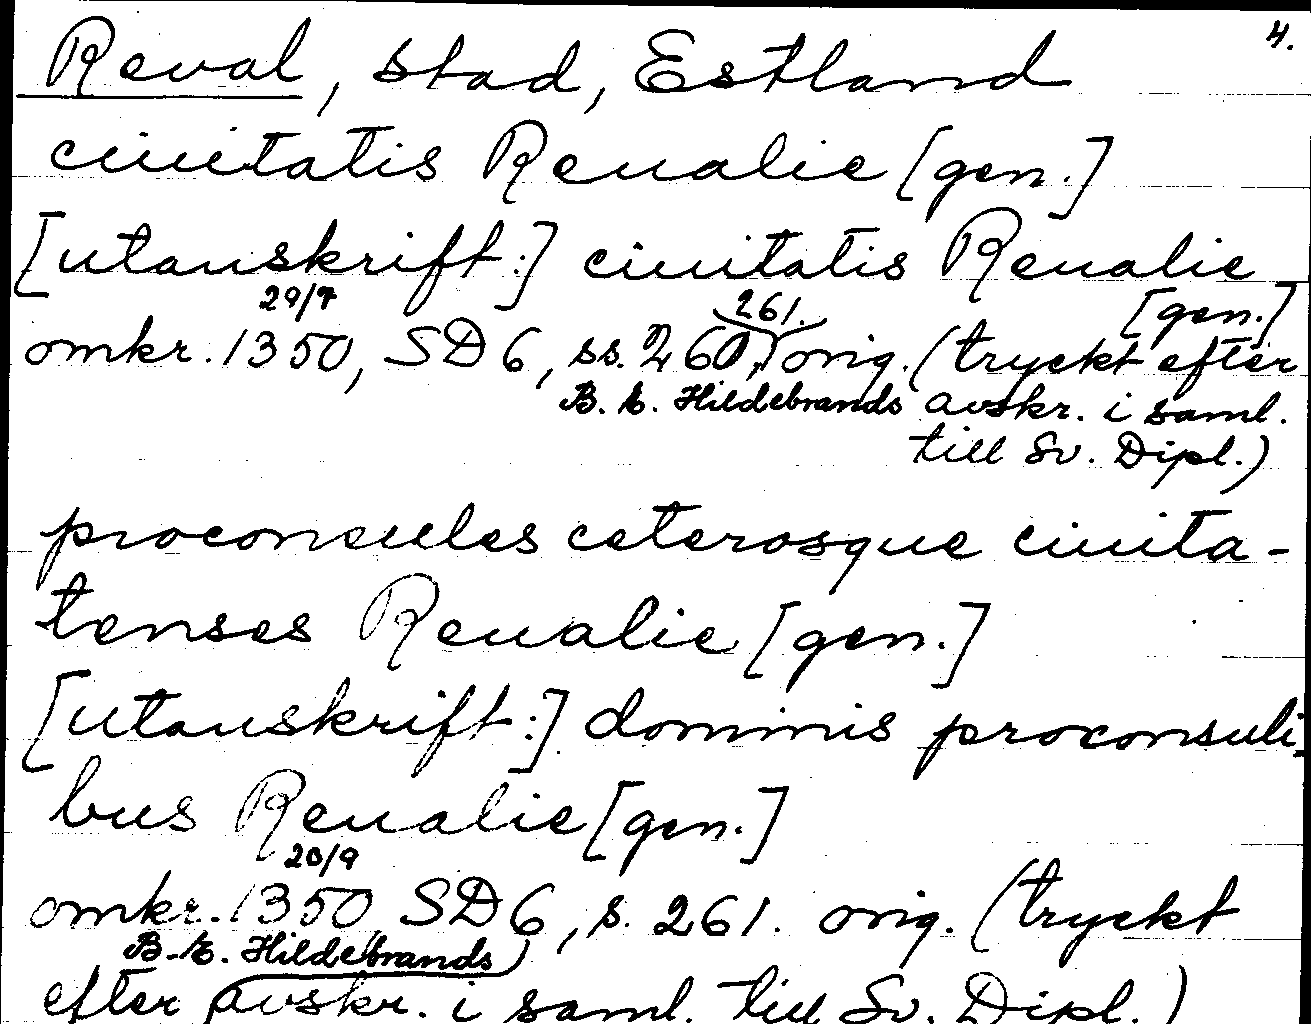 4.
Reval, stad, Estland
ciuitatis Reualie [gen.]
[utanskrift:] ciuitatis Reualie
[gen.]
29/9
261.
omkr. 1350, SD 6, ss. 260, orig. (tryckt efter
B. E. Hildebrands avskr. i saml.
till Sv. Dipl.)
proconsules ceterosque ciuita-
tenses Reualie [gen.]
[utanskrift:] dominis proconsuli-
bus Reualie [gen.]
20/9
omkr. 1350, SD 6, s. 261. orig. (tryckt
B. E. Hildebrands
efter avskr. i saml. till Sv. Dipl.)